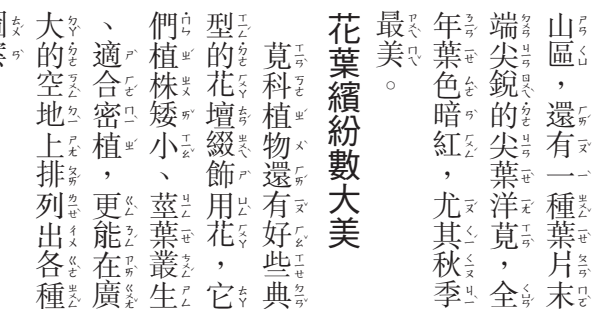 山區，還有一種葉片末
端尖銳的尖葉洋莧，全
年葉色暗紅，尤其秋季
最美。
花葉繽紛數大美
莧科植物還有好些典
型的花壇綴飾用花，它
們植株矮小、莖葉叢生
、適合密植，更能在廣
大的空地上排列出各種